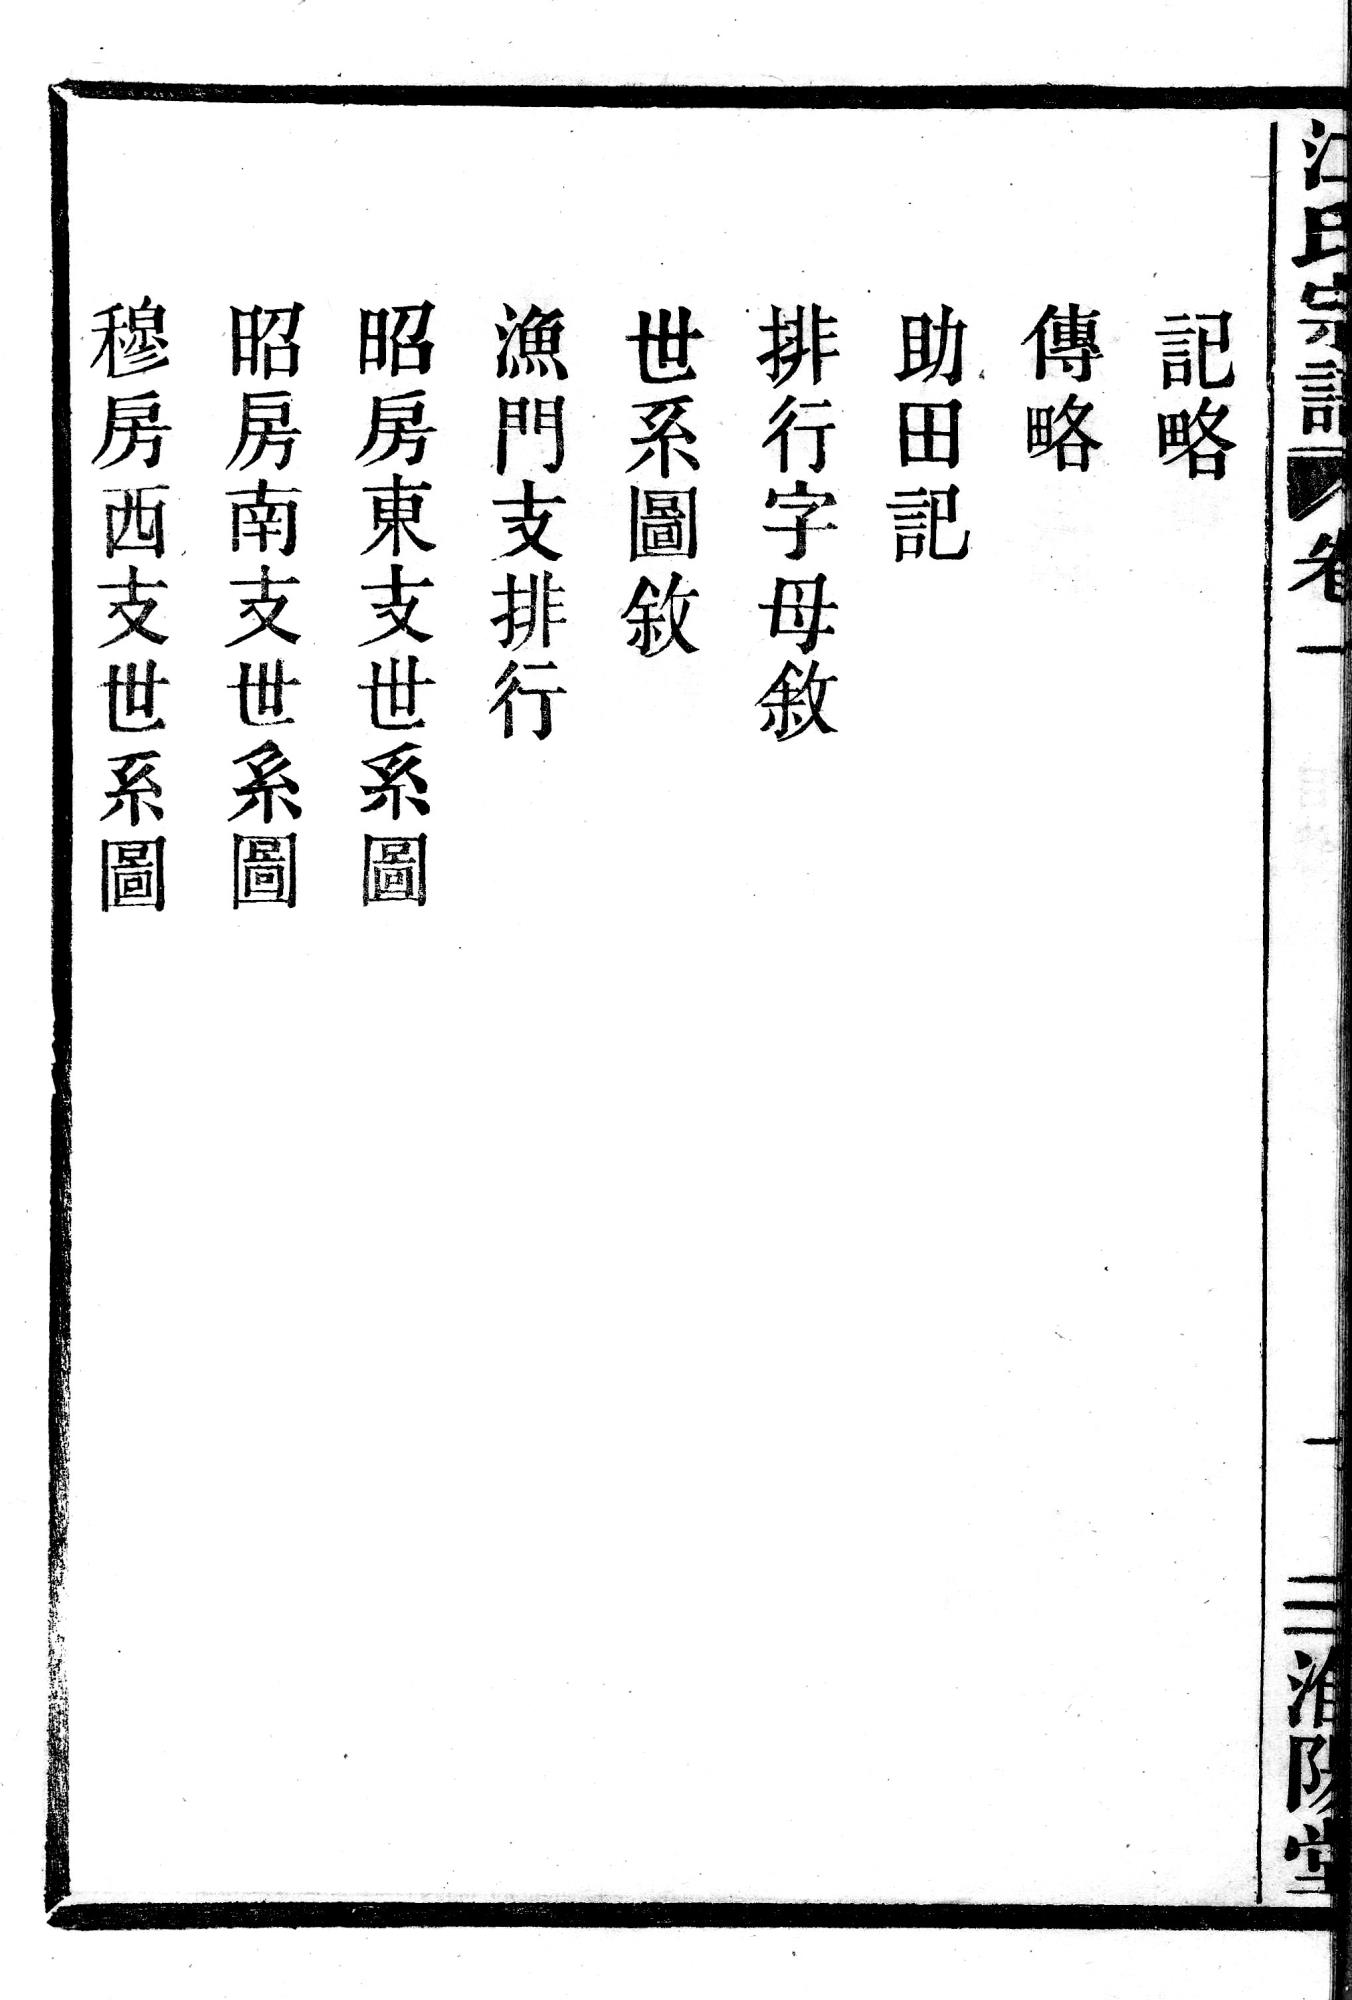 江氏宗譜 卷一 一 三淮陽堂
記略
傳略
助田記
排行字母敘
世系圖敘
漁門支排行
昭房東支世系圖
昭房南支世系圖
穆房西支世系圖